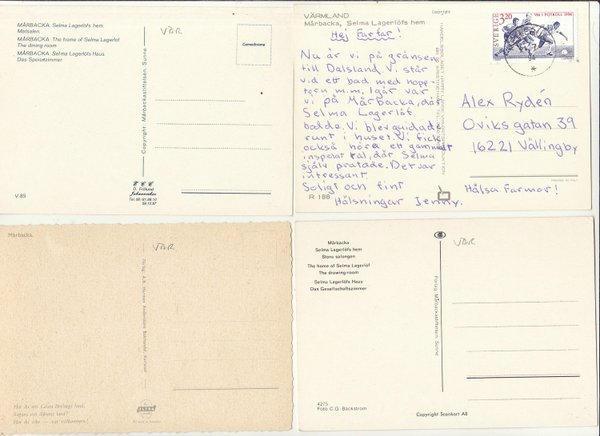 MÅRBACKA. Selma Lagerlöfs hem.
Matsalen.
MÅRBACKA. The home of Selma Lagerlöf
The dining room
MÅRBACKA. Selma Lagerlöfs Haus.
Das Speisezimmer
VBR
Copyright: Mårbackastiftelsen Sunne
V-89
VÄRMLAND
Mårbacka, Selma Lagerlöfs hem
Hej Farfar!
Nu är vi på gränsen
till Dalsland. Vi står
vid ett bad med hopp-
torn m.m. Igår var
vi på Mårbacka, där
Selma Lagerlöf
bodde. Vi blev guidade
runt i huset. Vi fick
också höra ett gammalt
inspelat tal, där Selma
själv pratade. Det var
intressant.
Soligt och fint
Hälsningar Jenny.
R 188
SVERIGE 3,20
VM I FOTBOLL 1990
Alex Rydén
Oviksgatan 39
16221 Vällingby
Hälsa Farmor!
Mårbacka.
VBR
ULTRA
Mårbacka
Selma Lagerlöfs hem
Stora salongen
The home of Selma Lagerlöf
The drawing-room
Selma Lagerlöfs Haus
Das Gesellschaftszimmer
VBR
Förlag: Mårbackastiftelsen Sunne
4275
Foto C.G. Bäckström
Copyright Scankort AB